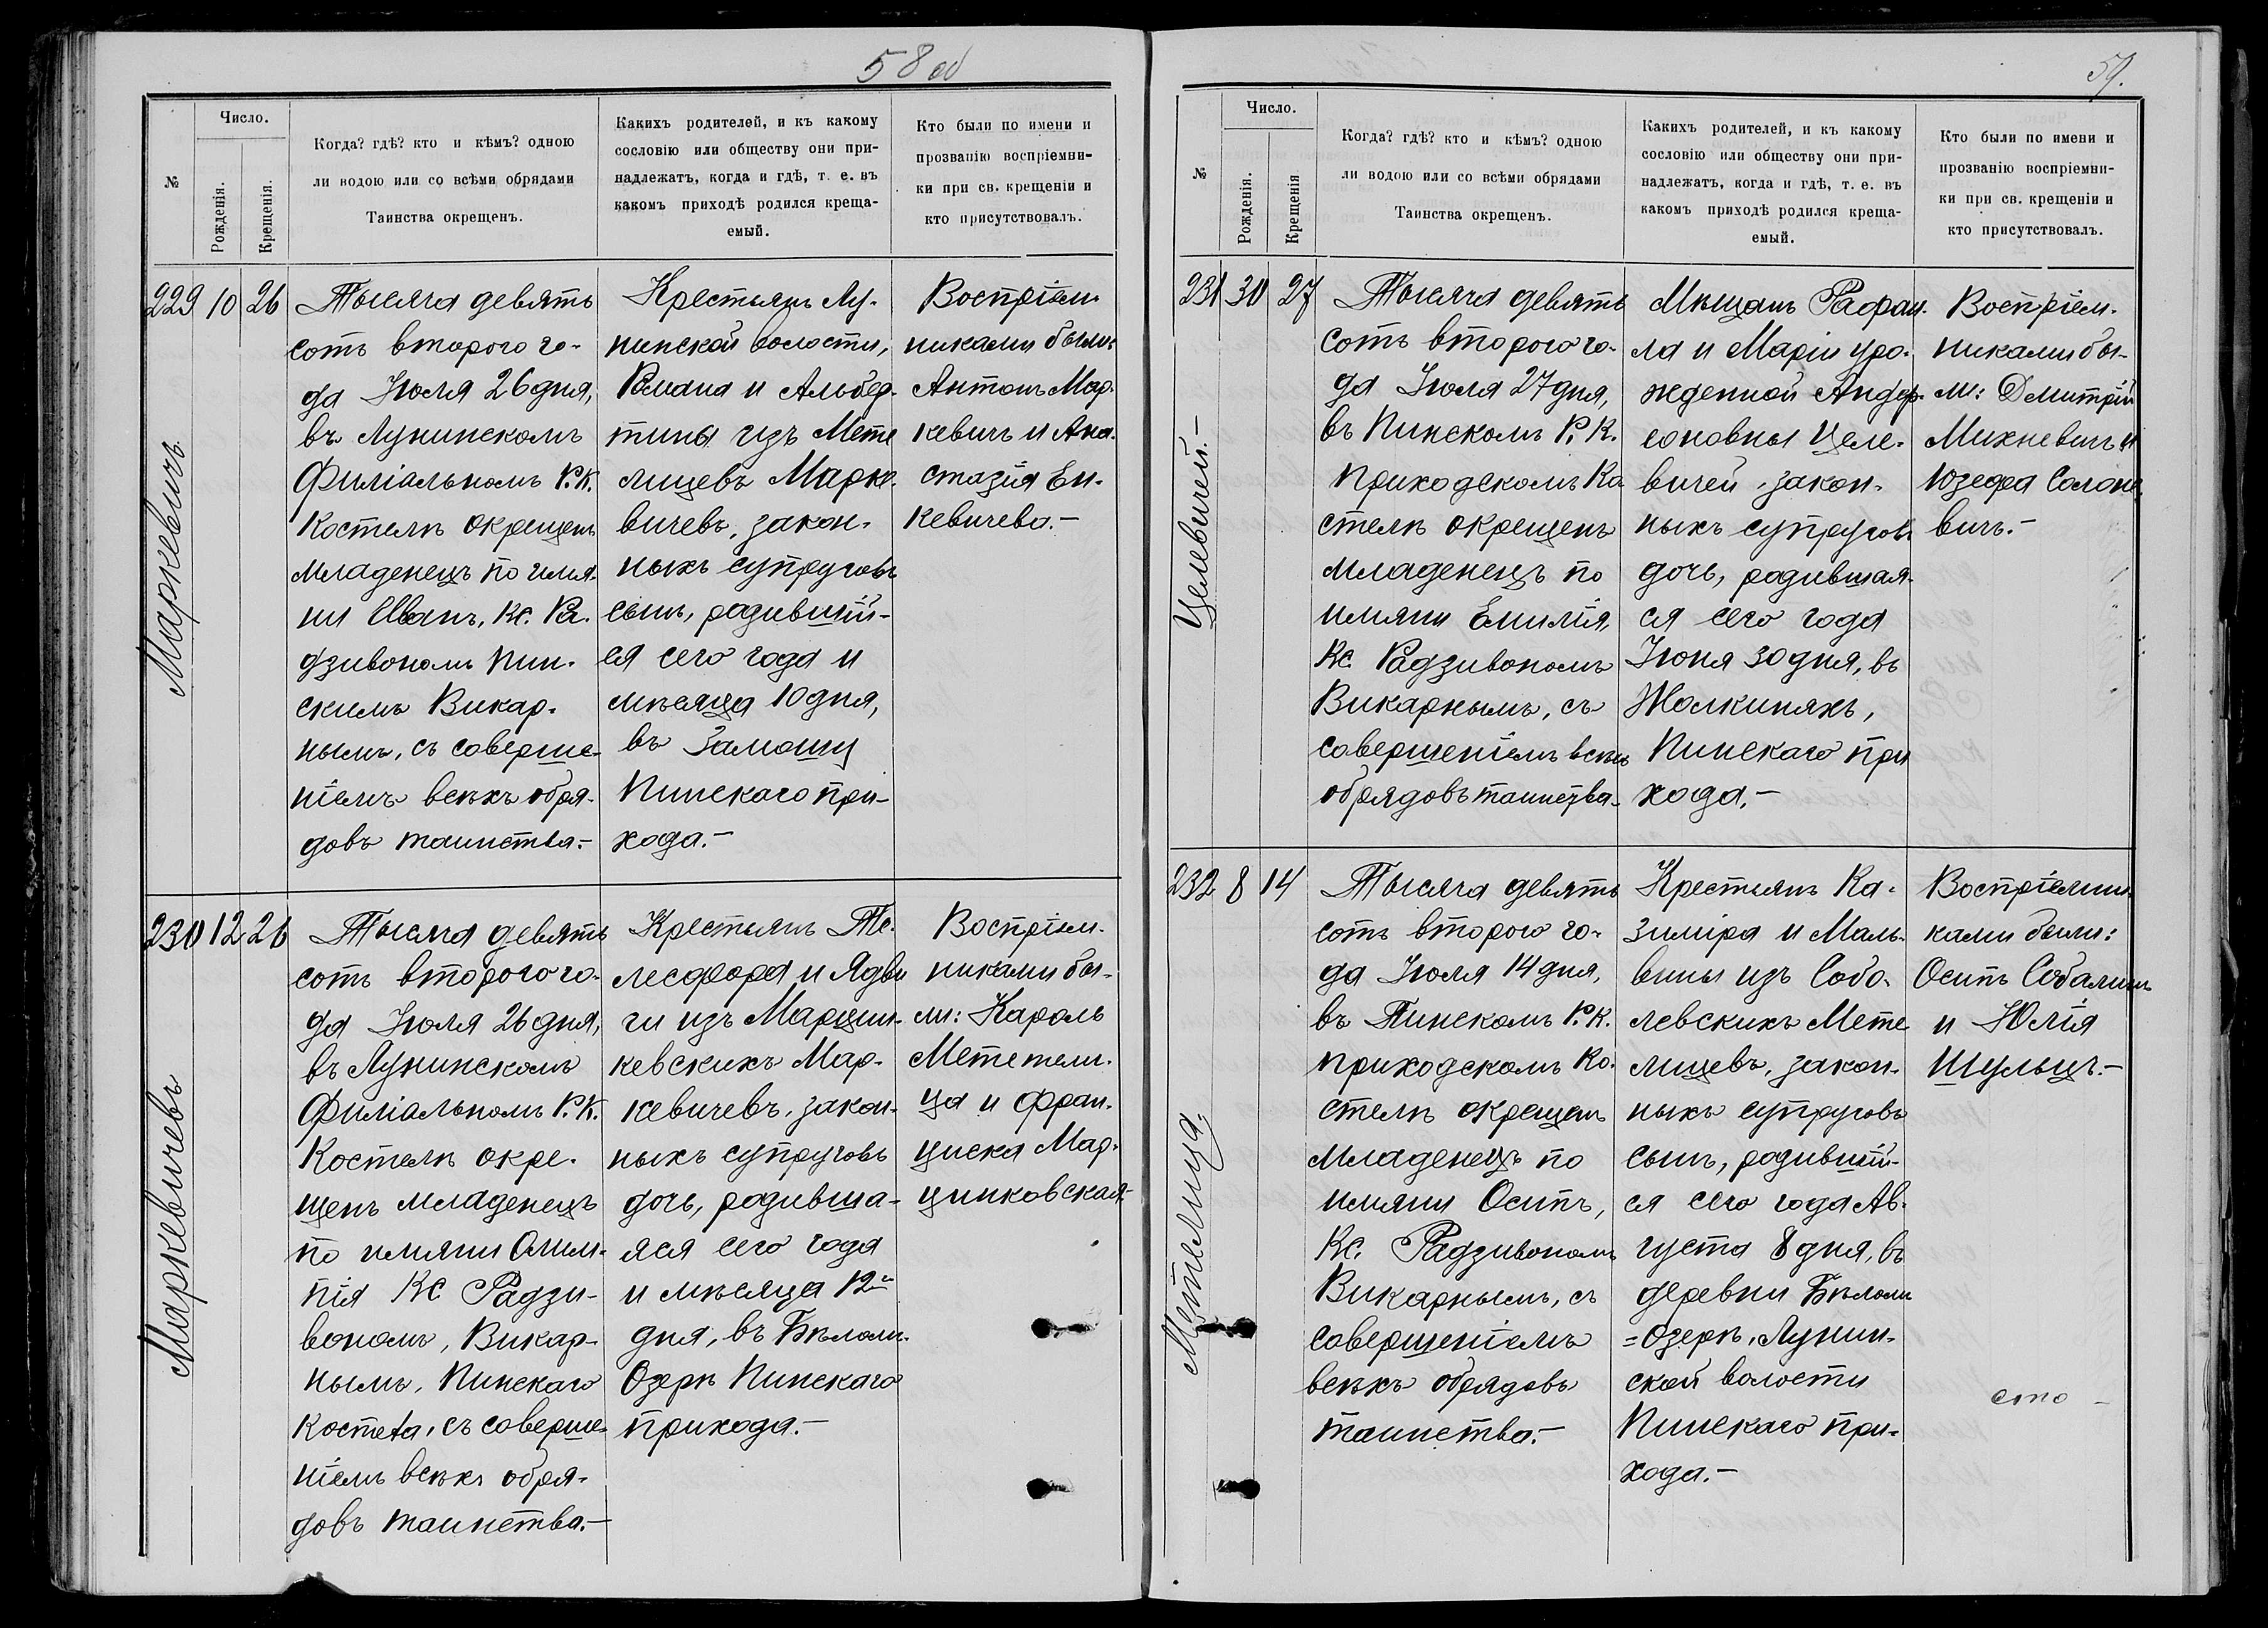 58 об
№
Число.
Рожденія.
Крещенія.
Когда? гдѣ? кто и кѣмъ? одною
ли водою или со всѣми обрядами
Таинства окрещенъ.
Какихъ родителей, и къ какому
сословію или обществу они при-
надлежатъ, когда и гдѣ, т. е. въ
какомъ приходѣ родился креща-
емый.
Кто были по имени и
прозванію воспріемни-
ки при св. крещеніи и
кто присутствовалъ.
Маркевичъ
229 10 26
Тысяча девять
сотъ второго го-
да Іюля 26 дня,
въ Лунинскомъ
Филіальномъ Р. К.
Костелѣ окрещенъ
младенецъ по имя-
ни Иванъ, Кс. Ра-
дзивономъ Пин-
скимъ Викар-
нымъ, съ соверше-
ніемъ всѣхъ обря-
довъ таинства.-
Крестьянъ Лу-
нинской волости,
Романа и Альбер-
тины изъ Мете
лицевъ Марке-
вичевъ, закон-
ныхъ супруговъ
сынъ, родившій-
ся сего года и
мѣсяца 10 дня,
въ Замошу
Пинскаго при-
хода.-
Воспріем-
никами были:
Антонъ Мар-
кевичъ и Ана-
стазія Ен-
кевичева.-
Маркевичевъ
230 12 26
Тысяча девять
сотъ второго го-
да Іюля 26 дня,
въ Лунинскомъ
Филіальномъ Р. К.
Костелѣ окре-
щенъ младенецъ
по имяни Олим-
пія Кс Радзи-
вономъ, Викар-
нымъ, Пинскаго
Костела, съ соверше-
ніемъ всѣхъ обря-
довъ таинства.-
Крестьянъ Те-
лесфора и Ядви
ги изъ Марцин-
кевскихъ Мар-
кевичевъ, закон-
ныхъ супруговъ
дочь, родивша-
яся сего года
и мѣсяца 12го
дня, въ Бѣломъ-
Озерѣ Пинскаго
прихода.-
Воспріем-
никами бы-
ли: Кароль
Мететели-
ца и Фран-
циска Мар-
цинковская-
59.
№
Число.
Рожденія.
Крещенія
Когда? гдѣ? кто и кѣмъ? одною
ли водою или со всѣми обрядами
Таинства окрещенъ.
Какихъ родителей, и къ какому
сословію или обществу они при-
надлежатъ, когда и гдѣ, т. е. въ
какомъ приходѣ родился креща-
емый.
Кто были по имени и
прозванію воспріемни-
ки при св. крещеніи и
кто присутствовалъ.
Целевичей.-
231 30 27
Тысяча девять
сотъ второго го-
да Іюля 27 дня,
въ Пинскомъ Р. К.
Приходскомъ Ко
стелѣ окрещенъ
младенецъ по
имяни Емилія,
Кс. Радзивономъ
Викарнымъ, съ
совершеніемъ всѣхъ
обрядовъ таинства-
Мѣщанъ Рафаи-
ла и Маріи уро-
жденной Андер-
соновны Целе-
вичей, закон-
ныхъ супруговъ
дочь, родившая-
ся сего года
Іюня 30 дня, въ
Жолкиняхъ,
Пинскаго при
хода.-
Воспріем-
никами бы-
ли: Дмитрій
Михневичъ и
Юзефа Солоне-
вичъ.-
Метелица.
232 8 14
Тысяча девять
сотъ второго го-
да Іюля 14 дня,
въ Пинскомъ Р. К.
приходскомъ Ко-
стелѣ окрещенъ
младенецъ по
имяни Осипъ,
Кс. Радзивономъ
Викарнымъ, съ
совершеніемъ
всѣхъ обрядовъ
таинства.-
Крестьянъ Ка-
зиміра и Маль-
вины изъ Собо-
левскихъ Мете
лицевъ, закон-
ныхъ супруговъ
сынъ, родившій-
ся сего года Ав-
густа 8 дня, въ
деревни Бѣломъ
=Озерѣ, Лунин-
ской волости
Пинскаго при-
хода.-
Воспріемни-
ками были:
Осипъ
и Юлія
Шульцъ.-